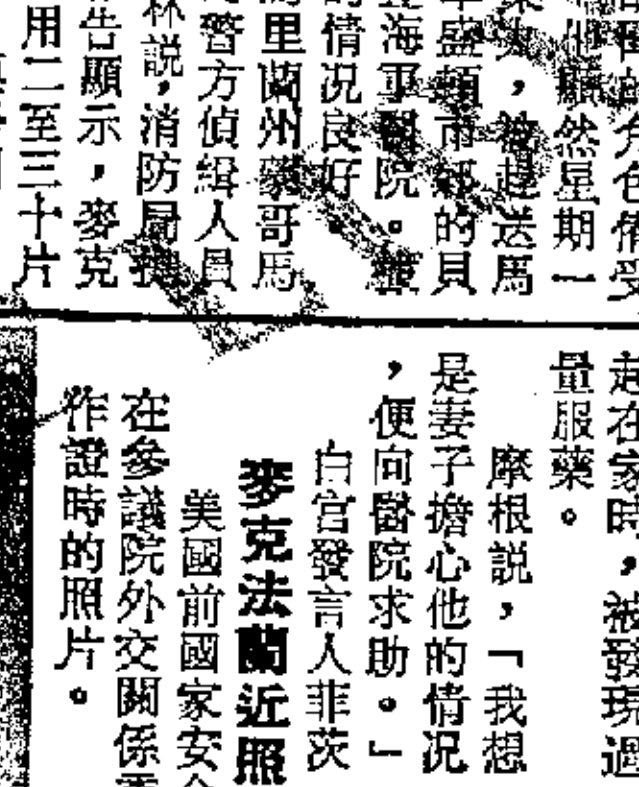 他顯然星期一
，被趕送馬
盛頓市郊的貝
海軍醫院。據
的情况良好。
里蘭州蒙哥馬
警方偵緝人員
林説，消防局
告顯示，麥克
用二至三十片
在家時，被發現過
量服藥。
摩根説，「我想
是妻子擔心他的情况
，便向醫院求助。」
白宮發言人菲茨
麥克法蘭近照
美國前國家安全
在參議院外交關係委
作證時的照片。